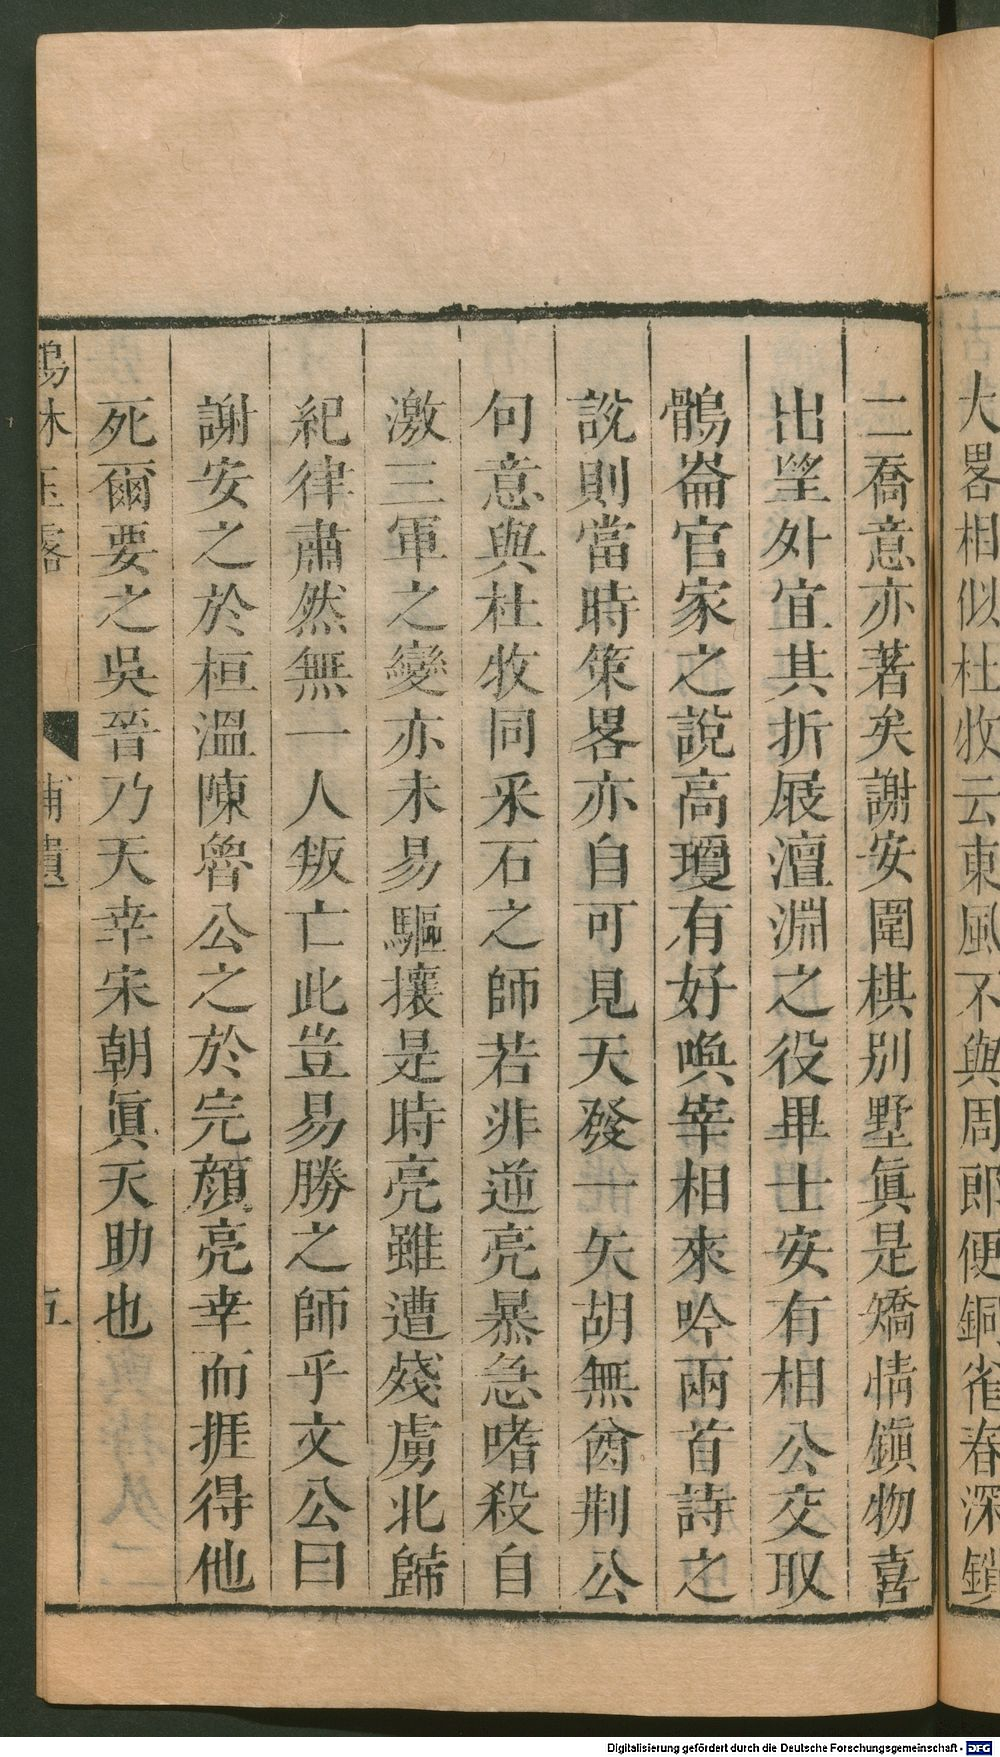 大畧相似杜牧云東風不與周郎便銅雀春深鎖
二喬意亦著矣謝安圍棋別墅眞是矯情鎭物喜
出望外宜其折屐澶淵之役畢士安有相公交取
鶻崙官家之說高瓊有好喚宰相來吟兩首詩之
說則當時策畧亦自可見天發一矢胡無酋荆公
句意與杜牧同釆石之師若非逆亮暴急嗜殺自
激三軍之變亦未易驅攘是時亮雖遭殘虜北歸
紀律肅然無一人叛亡此豈易勝之師乎文公曰
謝安之於桓溫陳魯公之於完顔亮幸而捱得他
死爾要之吳晉乃天幸宋朝眞天助也
林玉露 補遺 五
Digitalisierung gefördert durch die Deutsche Forschungsgemeinschaft - DFG